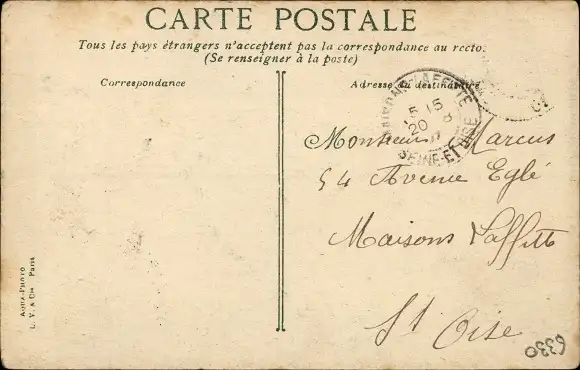 CARTE POSTALE
Tous les pays étrangers n'acceptent pas la correspondance au recto.
(Se renseigner à la poste)
Correspondance
Adresse du destinataire
MAISONS-LAFFITTE
5 15
20 - 8
SEINE-ET-OISE
Monsieur Marcus
54 Avenue Eglé
Maisons Laffitte
St Oise
AQUA-PHOTO
L. V. & Cie Paris
6330